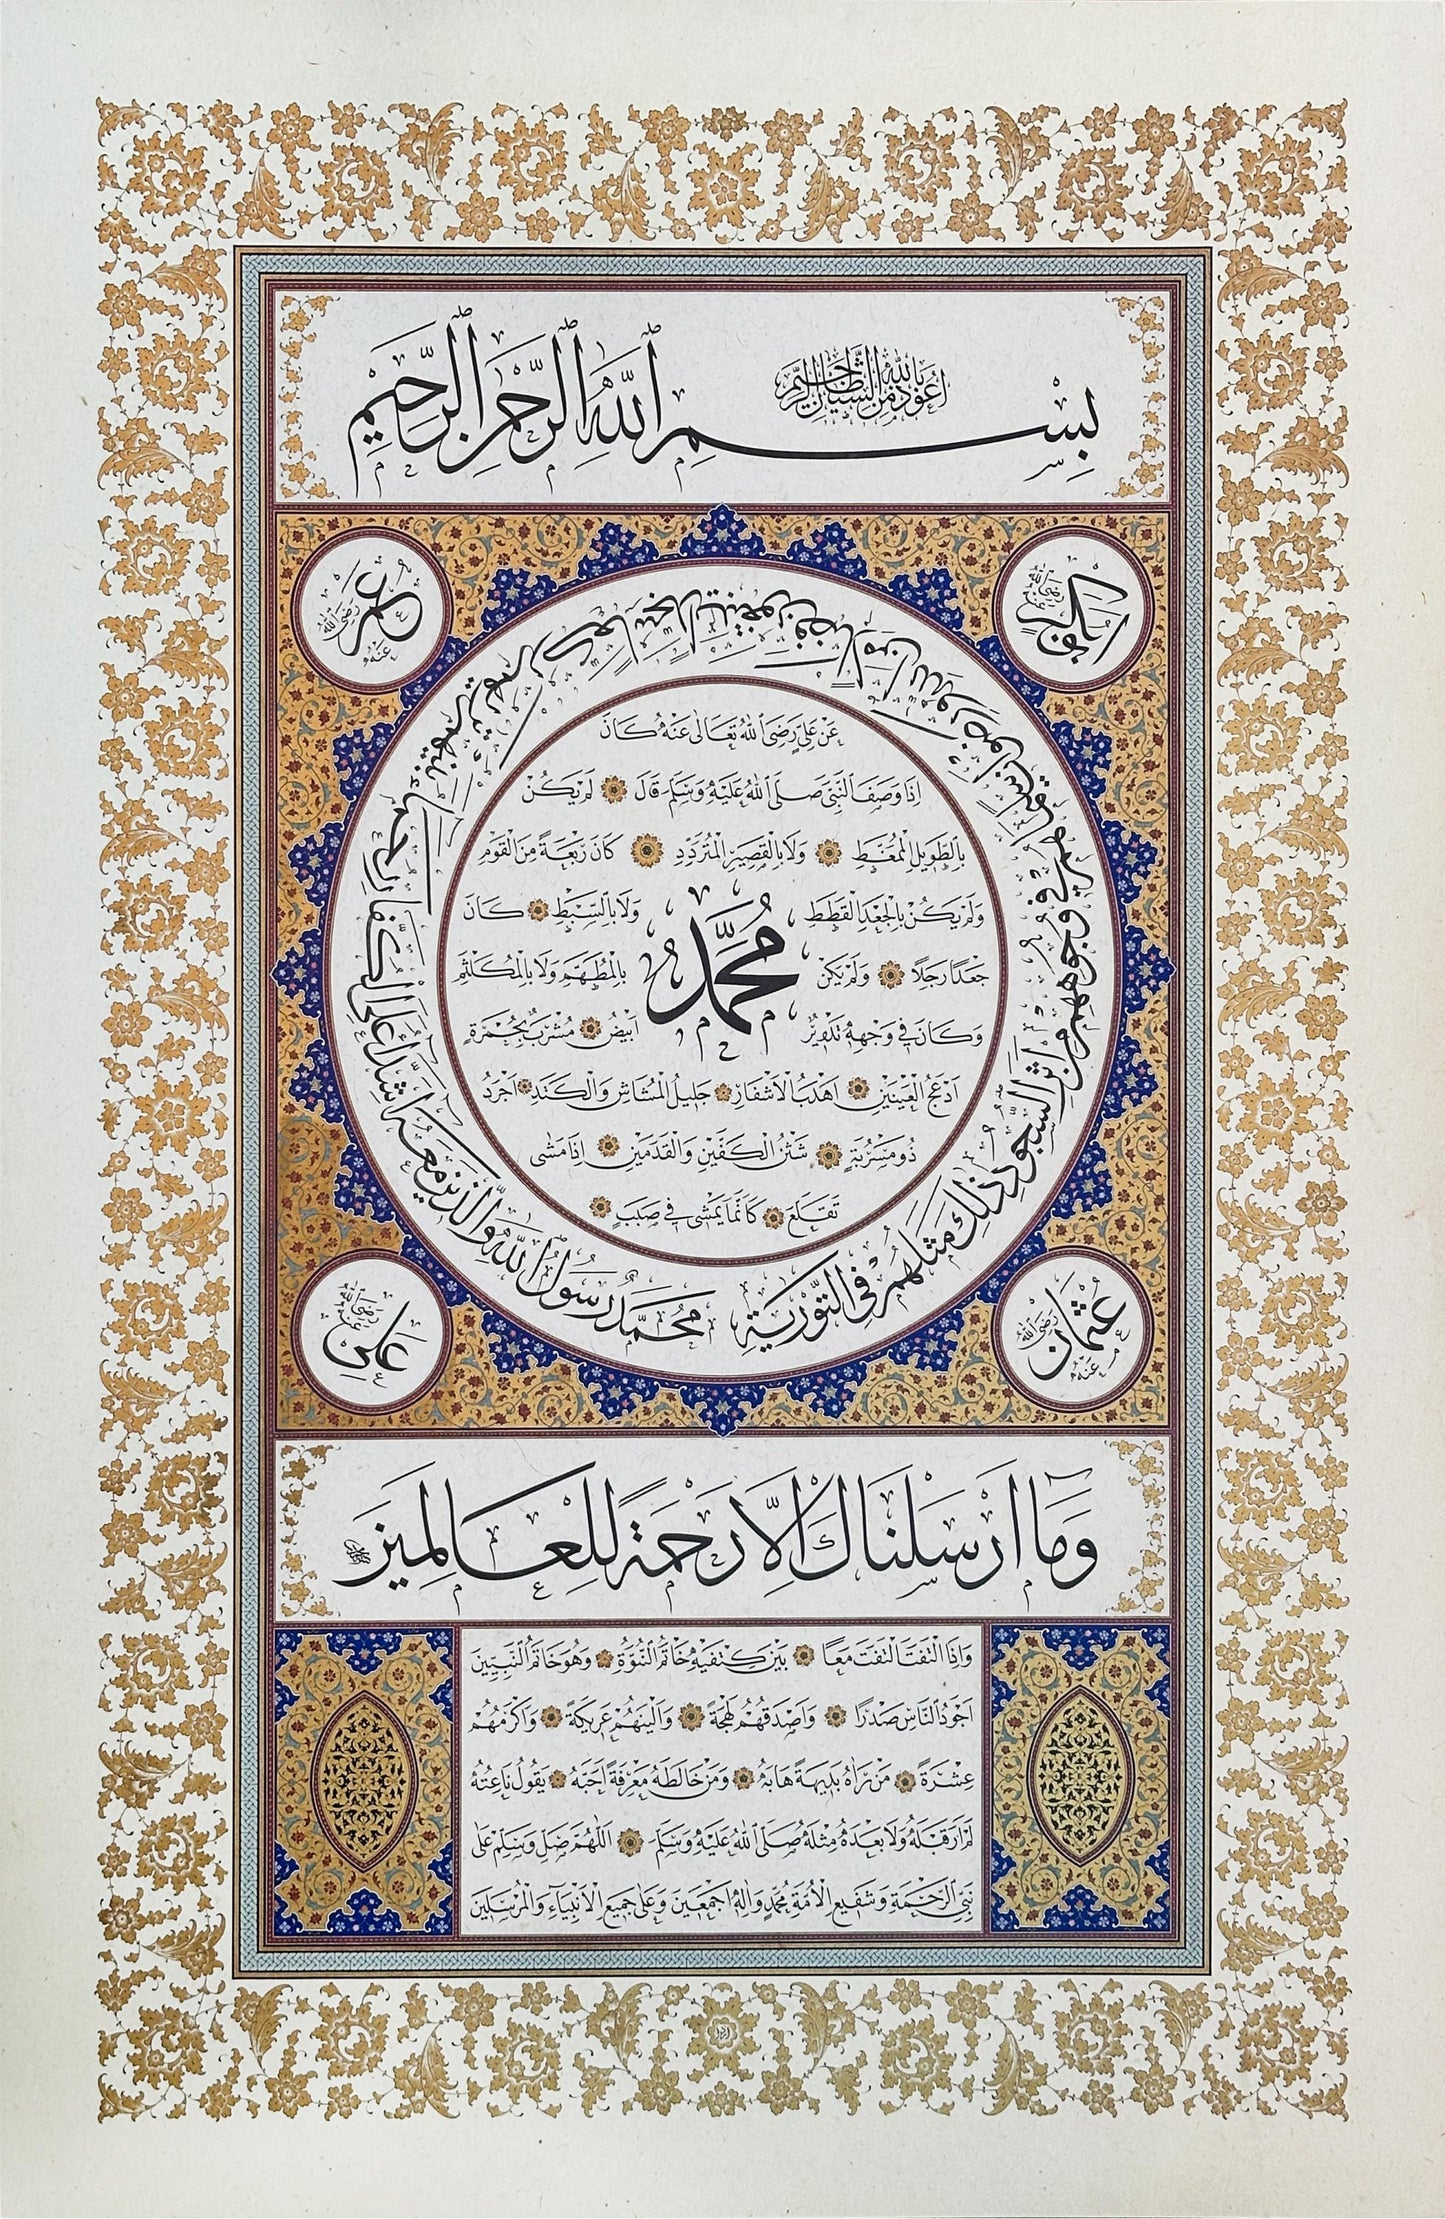 أعوذ بالله من الشيطان الرجيم
بِسْمِ ٱللّٰهِ ٱلرَّحْمٰنِ ٱلرَّحِيمِ
أبو بكر رضي الله عنه
عمر رضي الله عنه
مُحَمَّدٌ رَسُولُ اللّٰهِ وَالَّذِينَ مَعَهُ أَشِدَّاءُ عَلَى الْكُفَّارِ رُحَمَاءُ بَيْنَهُمْ تَرٰيهُمْ رُكَّعًا سُجَّدًا يَبْتَغُونَ فَضْلًا مِنَ اللّٰهِ وَرِضْوَانًا سِيمَاهُمْ فِي وُجُوهِهِمْ مِنْ أَثَرِ السُّجُودِ ذٰلِكَ مَثَلُهُمْ فِي التَّوْرٰيةِ
عَنْ عَلِيٍّ رَضِيَ اللّٰهُ تَعَالٰى عَنْهُ كَانَ
اِذَا وَصَفَ النَّبِيَّ صَلَّى اللّٰهُ عَلَيْهِ وَسَلَّمَ قَالَ لَمْ يَكُنْ
بِالطَّوِيلِ الْمُمَّغِطِ وَلَا بِالْقَصِيرِ الْمُتَرَدِّدِ كَانَ رَبْعَةً مِنَ الْقَوْمِ
وَلَمْ يَكُنْ بِالْجَعْدِ الْقَطَطِ وَلَا بِالسَّبْطِ كَانَ
جَعْدًا رَجِلًا وَلَمْ يَكُنْ بِالْمُطَهَّمِ وَلَا بِالْمُكَلْثَمِ
مُحَمَّد
وَكَانَ فِي وَجْهِهِ تَدْوِيرٌ اَبْيَضُ مُشْرَبٌ بِحُمْرَةٍ
اَدْعَجُ الْعَيْنَيْنِ اَهْدَبُ الْاَشْفَارِ جَلِيلُ الْمُشَاشِ وَالْكَتَدِ اَجْرَدُ
ذُو مَسْرُبَةٍ شَثْنُ الْكَفَّيْنِ وَالْقَدَمَيْنِ اِذَا مَشٰى
تَقَلَّعَ كَاَنَّمَا يَمْشِي فِي صَبَبٍ
عُثْمَان رضي الله عنه
علي رضي الله عنه
وَمَا اَرْسَلْنَاكَ اِلَّا رَحْمَةً لِلْعَالَمِينَ
وَاِذَا الْتَفَتَ الْتَفَتَ مَعًا بَيْنَ كَتِفَيْهِ خَاتَمُ النُّبُوَّةِ وَهُوَ خَاتَمُ النَّبِيِّينَ
اَجْوَدُ النَّاسِ صَدْرًا وَاَصْدَقُهُمْ لَهْجَةً وَاَلْيَنُهُمْ عَرِيكَةً وَاَكْرَمُهُمْ
عِشْرَةً مَنْ رَاٰهُ بَدِيهَةً هَابَهُ وَمَنْ خَالَطَهُ مَعْرِفَةً اَحَبَّهُ يَقُولُ نَاعِتُهُ
لَمْ اَرَ قَبْلَهُ وَلَا بَعْدَهُ مِثْلَهُ صَلَّى اللّٰهُ عَلَيْهِ وَسَلَّمَ اَللّٰهُمَّ صَلِّ وَسَلِّمْ عَلٰى
نَبِيِّ الرَّحْمَةِ وَشَفِيعِ الْاُمَّةِ مُحَمَّدٍ وَاٰلِهِ اَجْمَعِينَ وَعَلٰى جَمِيعِ الْاَنْبِيَاءِ وَالْمُرْسَلِينَ